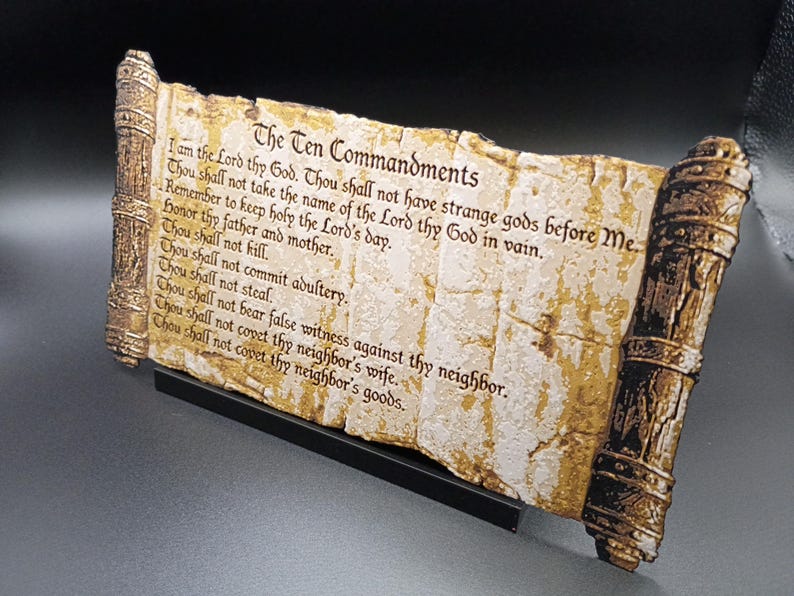 The Ten Commandments
I am the Lord thy God. Thou shall not have strange gods before Me.
Thou shall not take the name of the Lord thy God in vain.
Remember to keep holy the Lord's day.
Honor thy father and mother.
Thou shall not kill.
Thou shall not commit adultery.
Thou shall not steal.
Thou shall not bear false witness against thy neighbor.
Thou shall not covet thy neighbor's wife.
Thou shall not covet thy neighbor's goods.